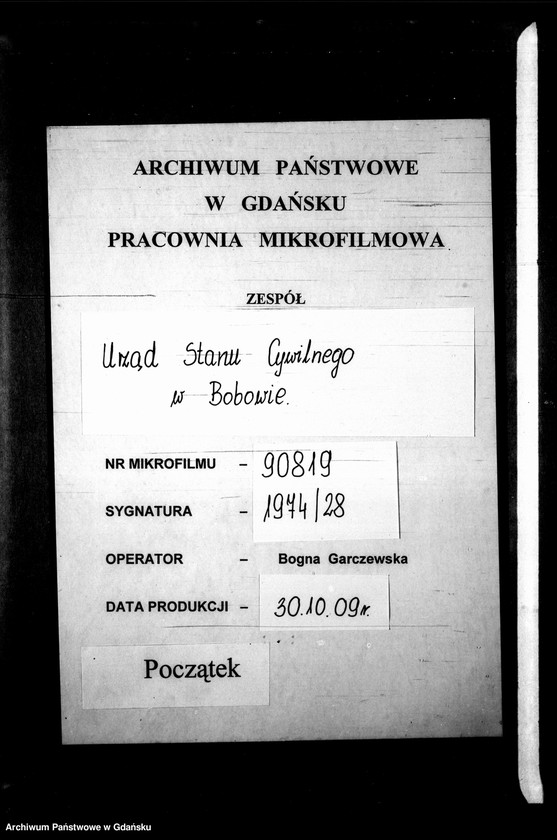 ARCHIWUM PAŃSTWOWE
W GDAŃSKU
PRACOWNIA MIKROFILMOWA
ZESPÓŁ
Urząd Stanu Cywilnego
w Bobowie.
NR MIKROFILMU – 90819
SYGNATURA – 1974/28
OPERATOR – Bogna Garczewska
DATA PRODUKCJI – 30.10.09r.
Początek
Archiwum Państwowe w Gdańsku